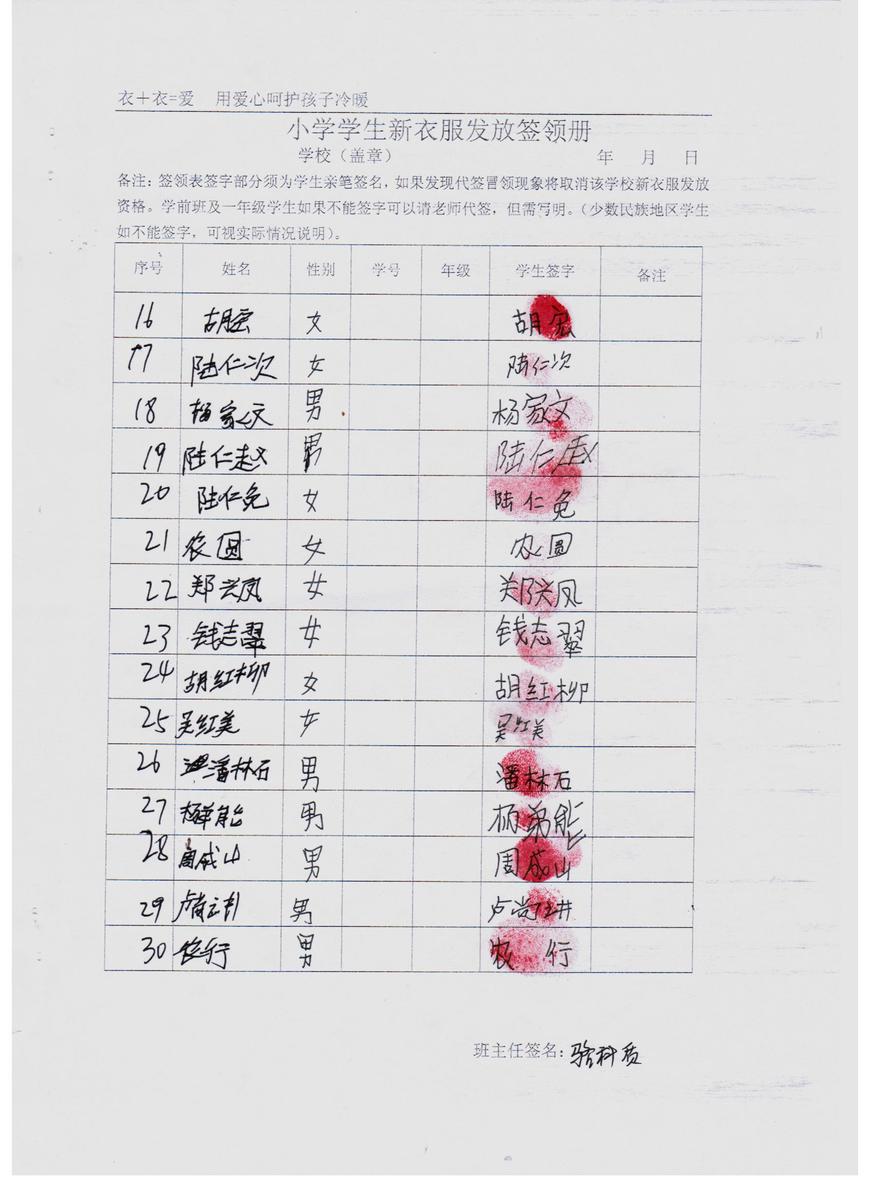 衣＋衣=爱 用爱心呵护孩子冷暖
小学学生新衣服发放签领册
学校（盖章） 年 月 日
备注：签领表签字部分须为学生亲笔签名，如果发现代签冒领现象将取消该学校新衣服发放
资格。学前班及一年级学生如果不能签字可以请老师代签，但需写明。（少数民族地区学生
如不能签字，可视实际情况说明）。
序号 姓名 性别 学号 年级 学生签字 备注
16 胡宏 女 胡宏
17 陆仁次 女 陆仁次
18 杨家文 男 杨家文
19 陆仁赵 男 陆仁赵
20 陆仁免 女 陆仁免
21 农圆 女 农圆
22 郑兴凤 女 郑兴凤
23 钱志翠 女 钱志翠
24 胡红柳 女 胡红柳
25 吴红美 女 吴红美
26 潘林石 男 潘林石
27 男 杨弟能
28 周成山 男 周成山
29 男
30 农行 男 农行
班主任签名：骆科质